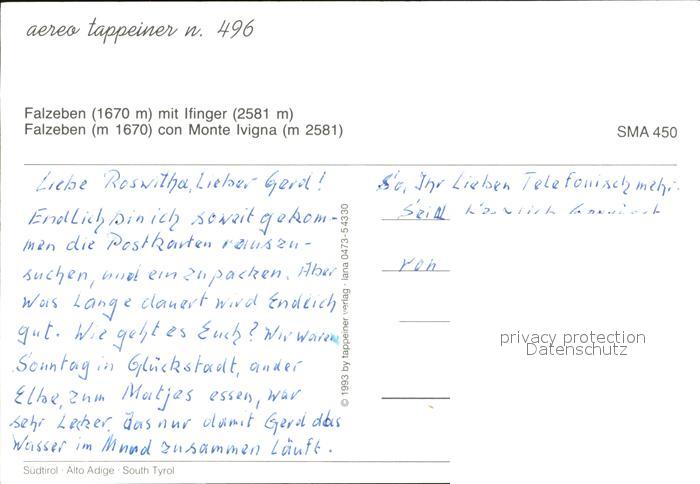 aereo tappeiner n. 496
Falzeben (1670 m) mit Ifinger (2581 m)
Falzeben (m 1670) con Monte Ivigna (m 2581)
SMA 450
Liebe Roswitha, Lieber Gerd!
Endlich bin ich soweit gekom-
men die Postkarten rauszu-
suchen, und ein zu packen. Aber
Was Lange dauert wird Endlich
gut. Wie geht es Euch? Wir waren
Sonntag in Glückstadt, an der
Elbe, zum Matjes essen, war
sehr Lecker, das nur damit Gerd das
Wasser im Mund zusammen Läuft.
© 1993 by tappeiner verlag · lana 0473-54330
So, Ihr Lieben Telefonisch mehr.
Seid herzlich
von
privacy protection
Datenschutz
Südtirol · Alto Adige · South Tyrol